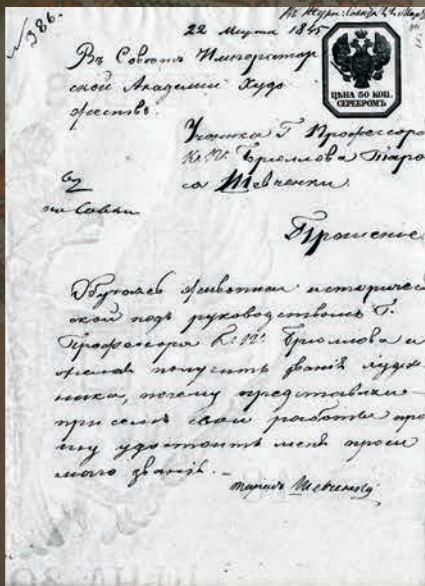 № 386.
22 Марта 1845
ЦѢНА 50 КОП.
СЕРЕБРОМЪ
Въ Советъ Император
ской Академіи Худо
жествъ.
Ученика Г. Професора
К. П. Брюллова Тара
са Шевченки.
Прошеніе
Обучаясь живописи историчес
кой подъ руководствомъ Г.
Професора К. П. Брюллова и
желая получить званіе худож
ника, почему представляя
при семъ свои работы про
шу удостоить меня проси
маго званія. –
Тарасъ Шевченко